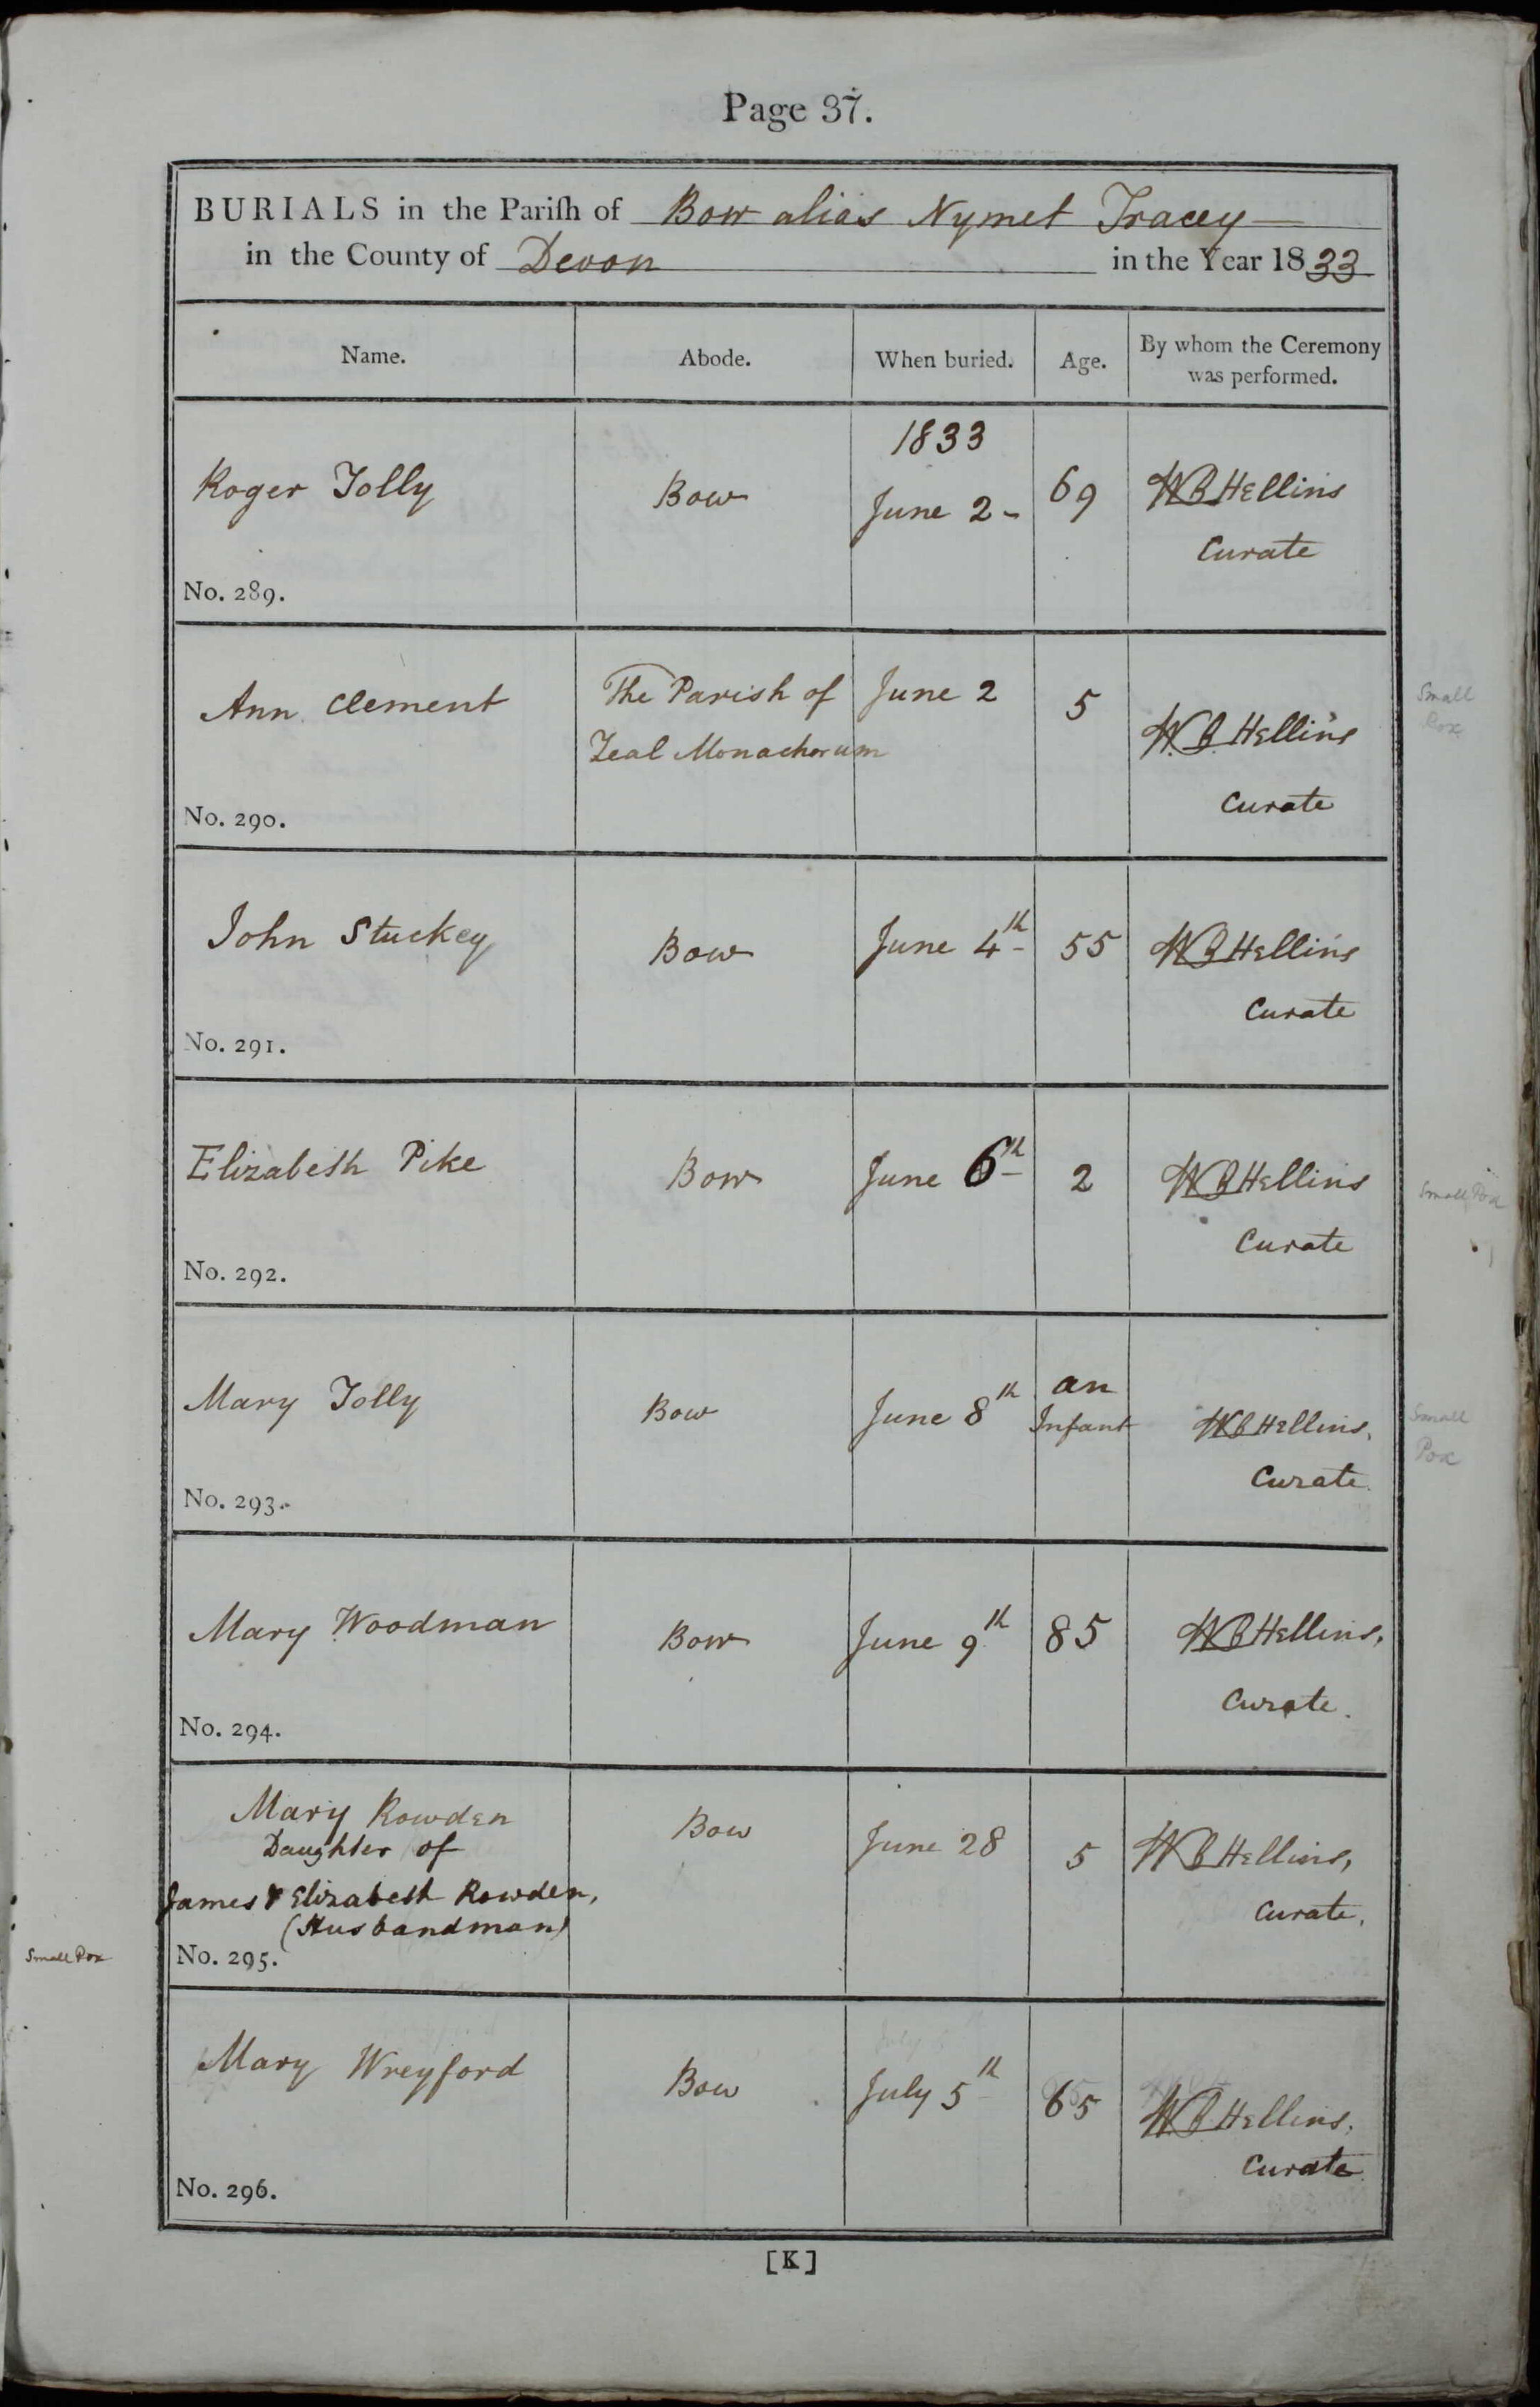 Page 37.
BURIALS in the Pariſh of Bow alias Nymet Tracey
in the County of Devon in the Year 1833
Name. Abode. When buried. Age. By whom the Ceremony was performed.
1833
Roger Jolly Bow June 2 - 69 WB Hellins
Curate
No. 289.
Ann Clement The Parish of June 2 5 W.B. Hellins
Zeal Monachorum
Curate
Small
Pox
No. 290.
John Stuckey Bow June 4th 55 WB Hellins
Curate
No. 291.
Elizabeth Pike Bow June 6th 2 WB Hellins
Curate
Small Pox
No. 292.
Mary Jolly Bow June 8th an
Infant WB Hellins,
Curate.
Small
Pox
No. 293.
Mary Woodman Bow June 9th 85 WB Hellins,
Curate.
No. 294.
Mary Rowden Bow June 28 5 WB Hellins,
Daughter of
James & Elizabeth Rowden,
(Husbandman)
Curate.
Small Pox
No. 295.
Mary Wreyford Bow July 5th 65 W.B. Hellins.
Curate
No. 296.
[K]